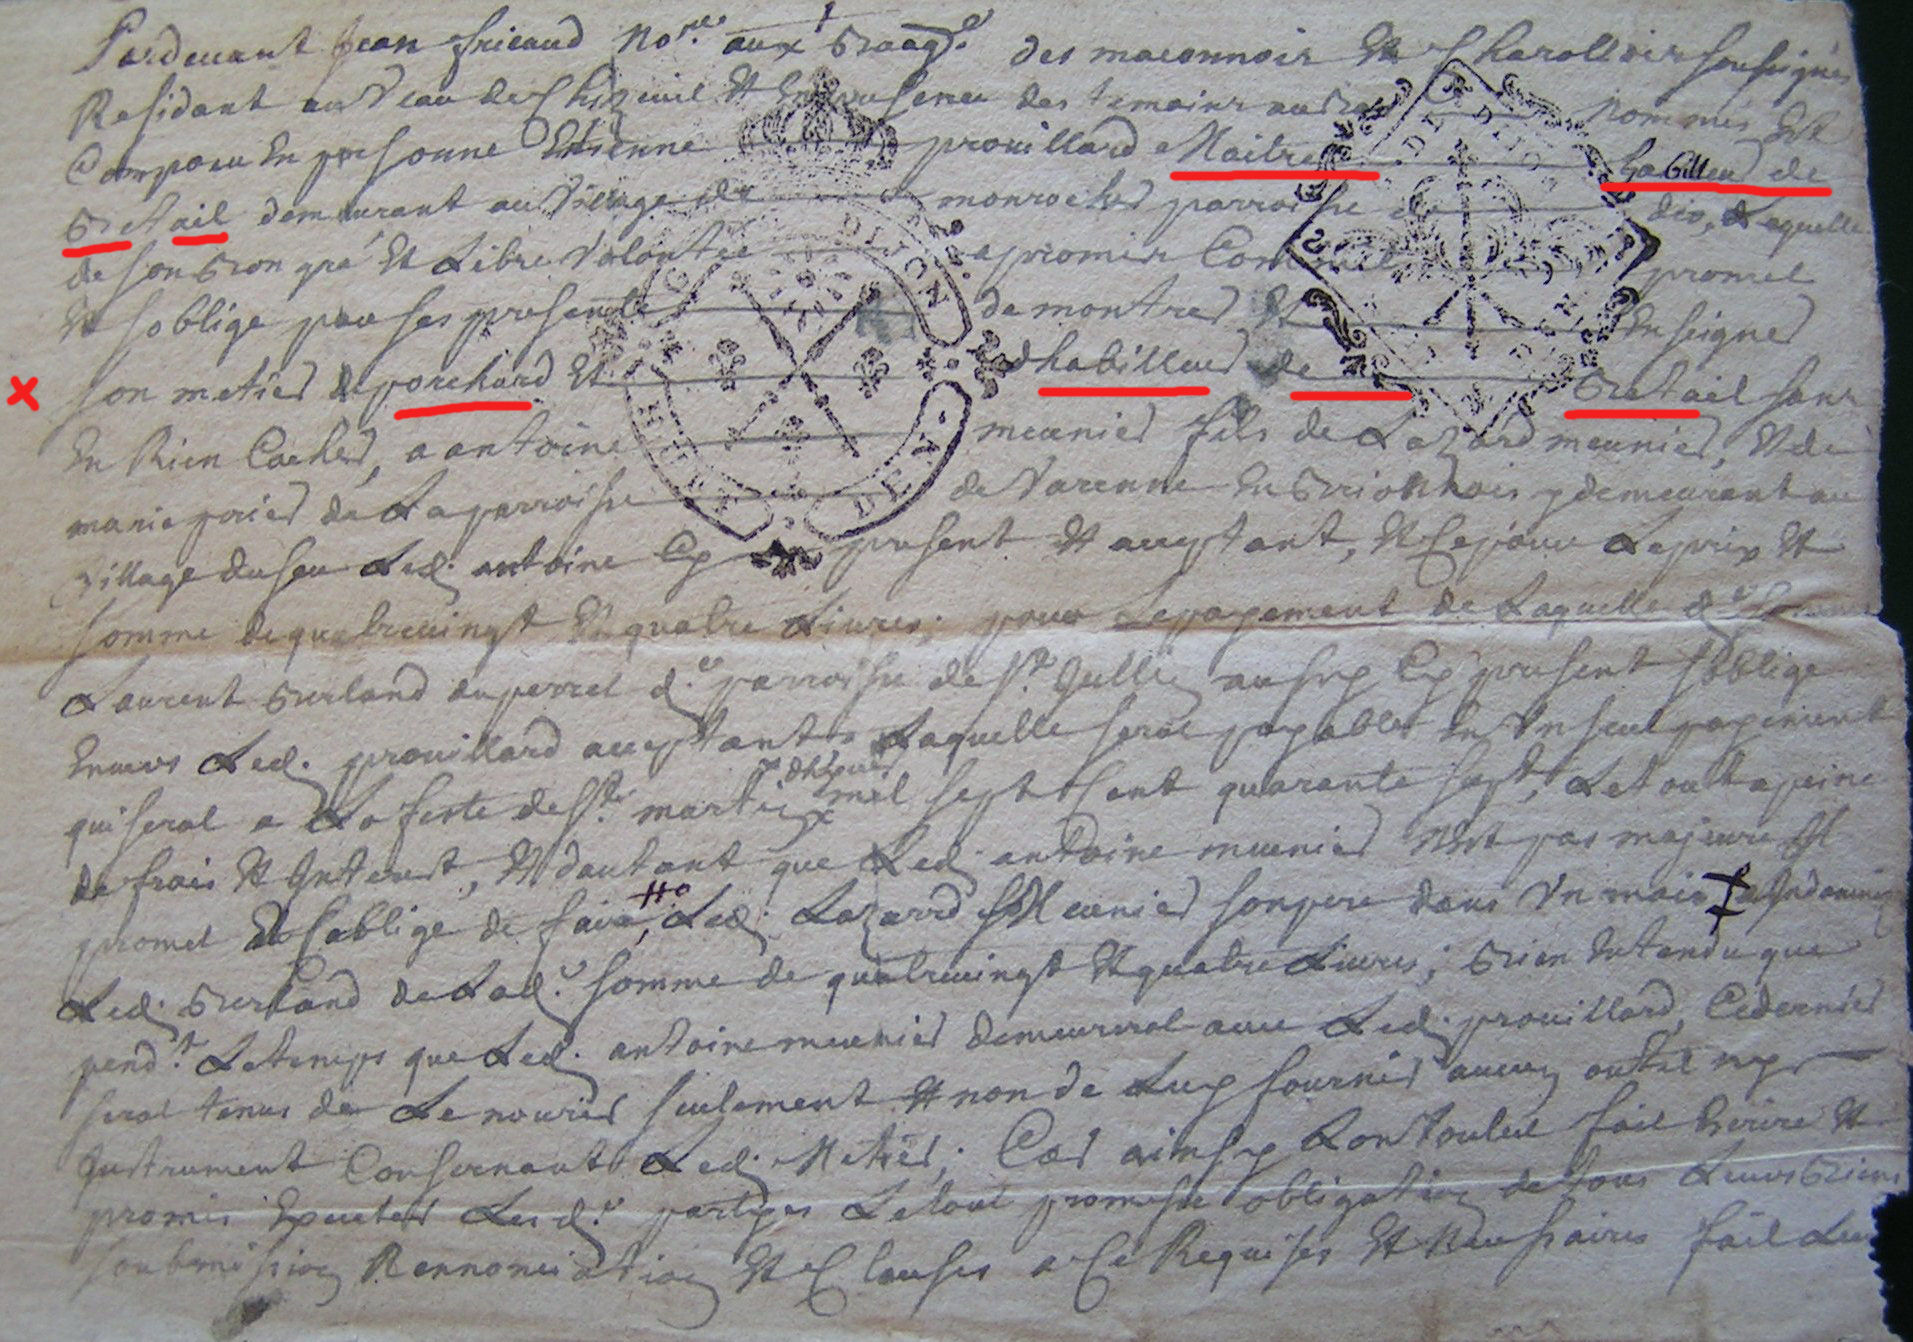 Pardeuant Jean fricaud No.re aux Baag.es des maconnois Et Charollois sousigné
Residant au Veau de Chizeuil Et En presence des temoins au Bas nommés Est
Comparu En personne Etienne prouillard Maitre habilleur de
Betail demeurant au Village de monrochet parroisse de dio, Laquelle
de son Bon gré Et Libre Volonté a promis Comme il promet
Et soblige par ses presente de montrer Et Enseigner
son metier de porchard Et dhabilleur de Betail sans
En Rien Cacher, a antoine meunier fils de Lazard meunier, Et de
marie prier de La parroisse de Varenne En Brionnois y demeurant au
Village du feu Led. antoine Cy present Et acceptant, Et Ce pour Le prix Et
somme de quatreuingt Et quatre Liures; pour Le payement de Laquelle d.e somme
Laurent Burland du perret d.e parroisse de S.t Jullin aussy Cy present soblige
Enuers Led. prouillard acceptant Laquelle serat payable En Vn seul payement
qui serat a La feste de S.t martin dhyuer mil sept Cent quarante sept, Le tout a peine
de frais Et Interest, Et dautant que Led. antoine meunier N'est pas majeure Il
promet Et soblige de faire, Led. Lazard Meunier son pere dans Vn mois a Indamniser
Led. Burland de Lad.e somme de quatreuingt Et quatre Liures; Bien Entendu que
pend.t Le temps que Led. antoine meunier demeurerat auec Led. prouillard, Ce dernier
serat tenus de Le nourir seulement Et non de Luy fournir aucun outil ny
Instrument Consernant Led. Metier; Car ainsy Lont Voulut fait Ecrire Et
promis Executer Lesd.es partyes Le tout promesse obligation de tous Leurs Biens
soubmission Rennonciation Et Clauses a Ce Requises Et Necessaires fait Lu
GN. DE DIJON